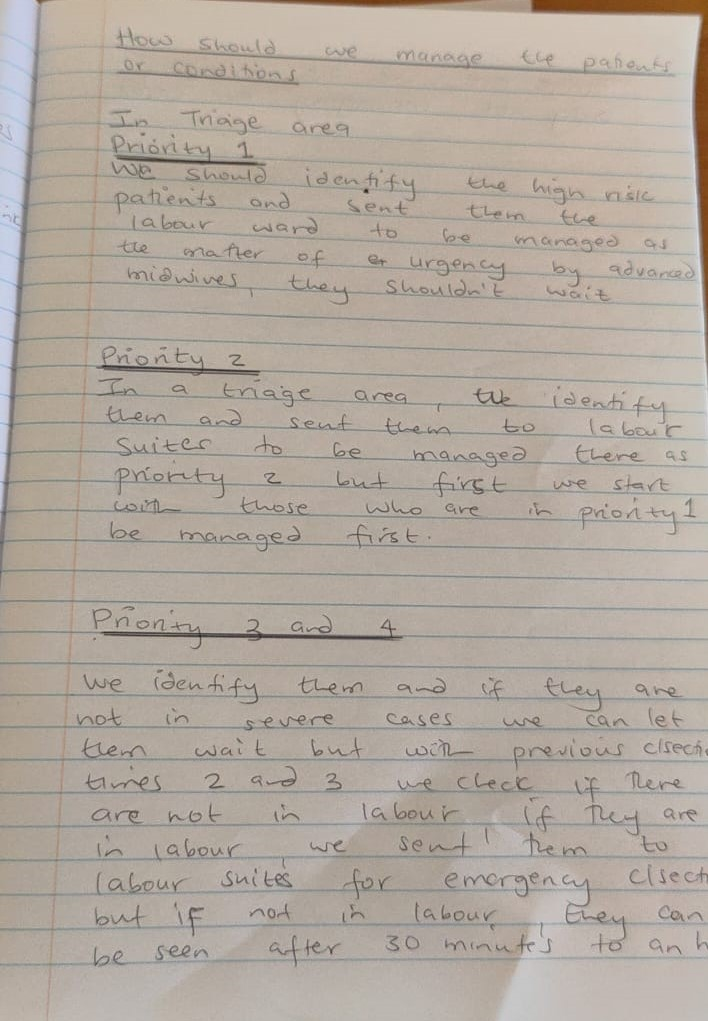 How should we manage the patients
or conditions
In Triage area
Priority 1
We should identify the high risk
patients and sent them the
labour ward to be managed as
the matter of urgency by advanced
midwives, they shouldn't wait
Priority 2
In a triage area, we identify
them and sent them to labour
suites to be managed there as
priority 2 but first we start
with those who are in priority 1
be managed first.
Priority 3 and 4
We identify them and if they are
not in severe cases we can let
them wait but with previous c/secti
times 2 and 3 we check if there
are not in labour if they are
in labour, we sent them to
labour suites for emergency c/sect
but if not in labour, they can
be seen after 30 minutes to an h